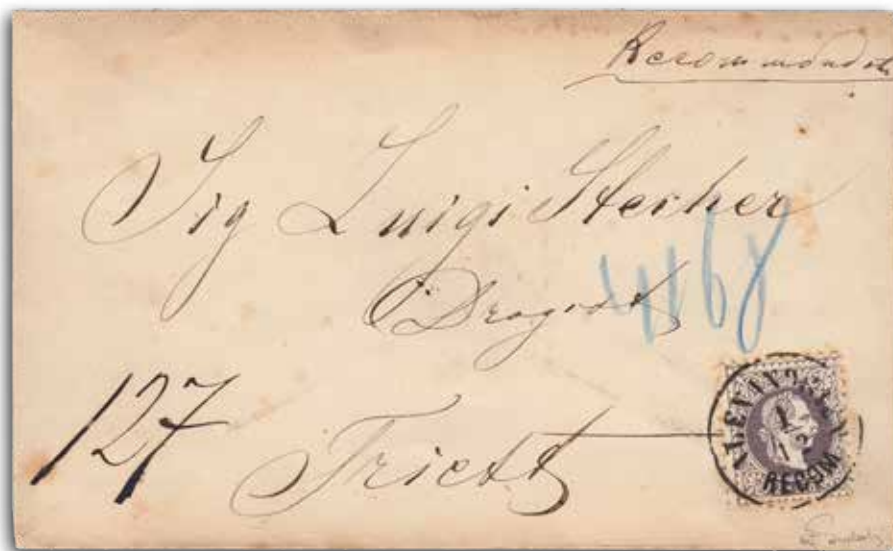 Recommandirt
Sig Luigi Stecher
Drogist
4168
127
Triest
ALEXANDRIEN
1/2
RECOM